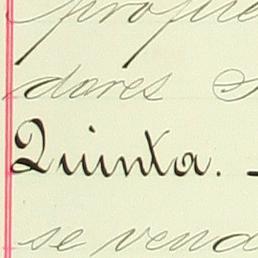 dores
Quinta. -
se vend